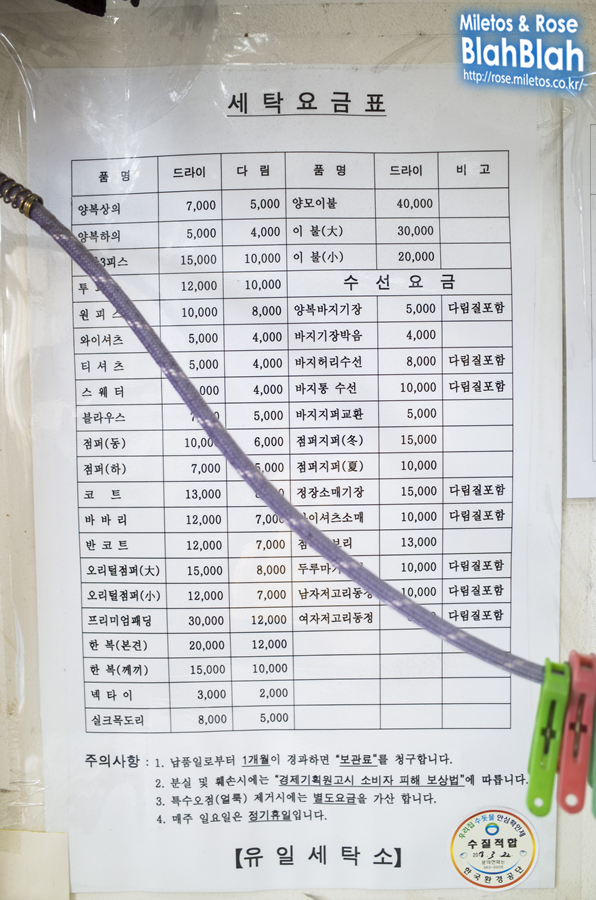 Miletos & Rose
BlahBlah
http://rose.miletos.co.kr/
세 탁 요 금 표
품 명 드라이 다 림 품 명 드라이 비 고
양복상의 7,000 5,000 양모이불 40,000
양복하의 5,000 4,000 이 불(大) 30,000
3피스 15,000 10,000 이 불(小) 20,000
투 12,000 10,000 수 선 요 금
원 피 스 10,000 8,000 양복바지기장 5,000 다림질포함
와이셔츠 5,000 4,000 바지기장박음 4,000
티 셔 츠 5,000 4,000 바지허리수선 8,000 다림질포함
스 웨 터 4,000 바지통 수선 10,000 다림질포함
블라우스 5,000 바지지퍼교환 5,000
점퍼(동) 10,000 6,000 점퍼지퍼(冬) 15,000
점퍼(하) 7,000 점퍼지퍼(夏) 10,000
코 트 13,000 정장소매기장 15,000 다림질포함
바 바 리 12,000 7,000 와이셔츠소매 10,000 다림질포함
반 코 트 12,000 7,000 13,000
오리털점퍼(大) 15,000 8,000 두루마기 10,000 다림질포함
오리털점퍼(小) 12,000 7,000 남자저고리동정 10,000 다림질포함
프리미엄패딩 30,000 12,000 여자저고리동정 다림질포함
한 복(본견) 20,000 12,000
한 복(깨끼) 15,000 10,000
넥 타 이 3,000 2,000
실크목도리 8,000 5,000
주의사항 : 1. 납품일로부터 1개월이 경과하면 "보관료"를 청구합니다.
2. 분실 및 훼손시에는 "경제기획원고시 소비자 피해 보상법"에 따릅니다.
3. 특수오점(얼룩) 제거시에는 별도요금을 가산 합니다.
4. 매주 일요일은 정기휴일입니다.
【유 일 세 탁 소】
우리집 수돗물 안심확인제
수질적합
한국환경공단